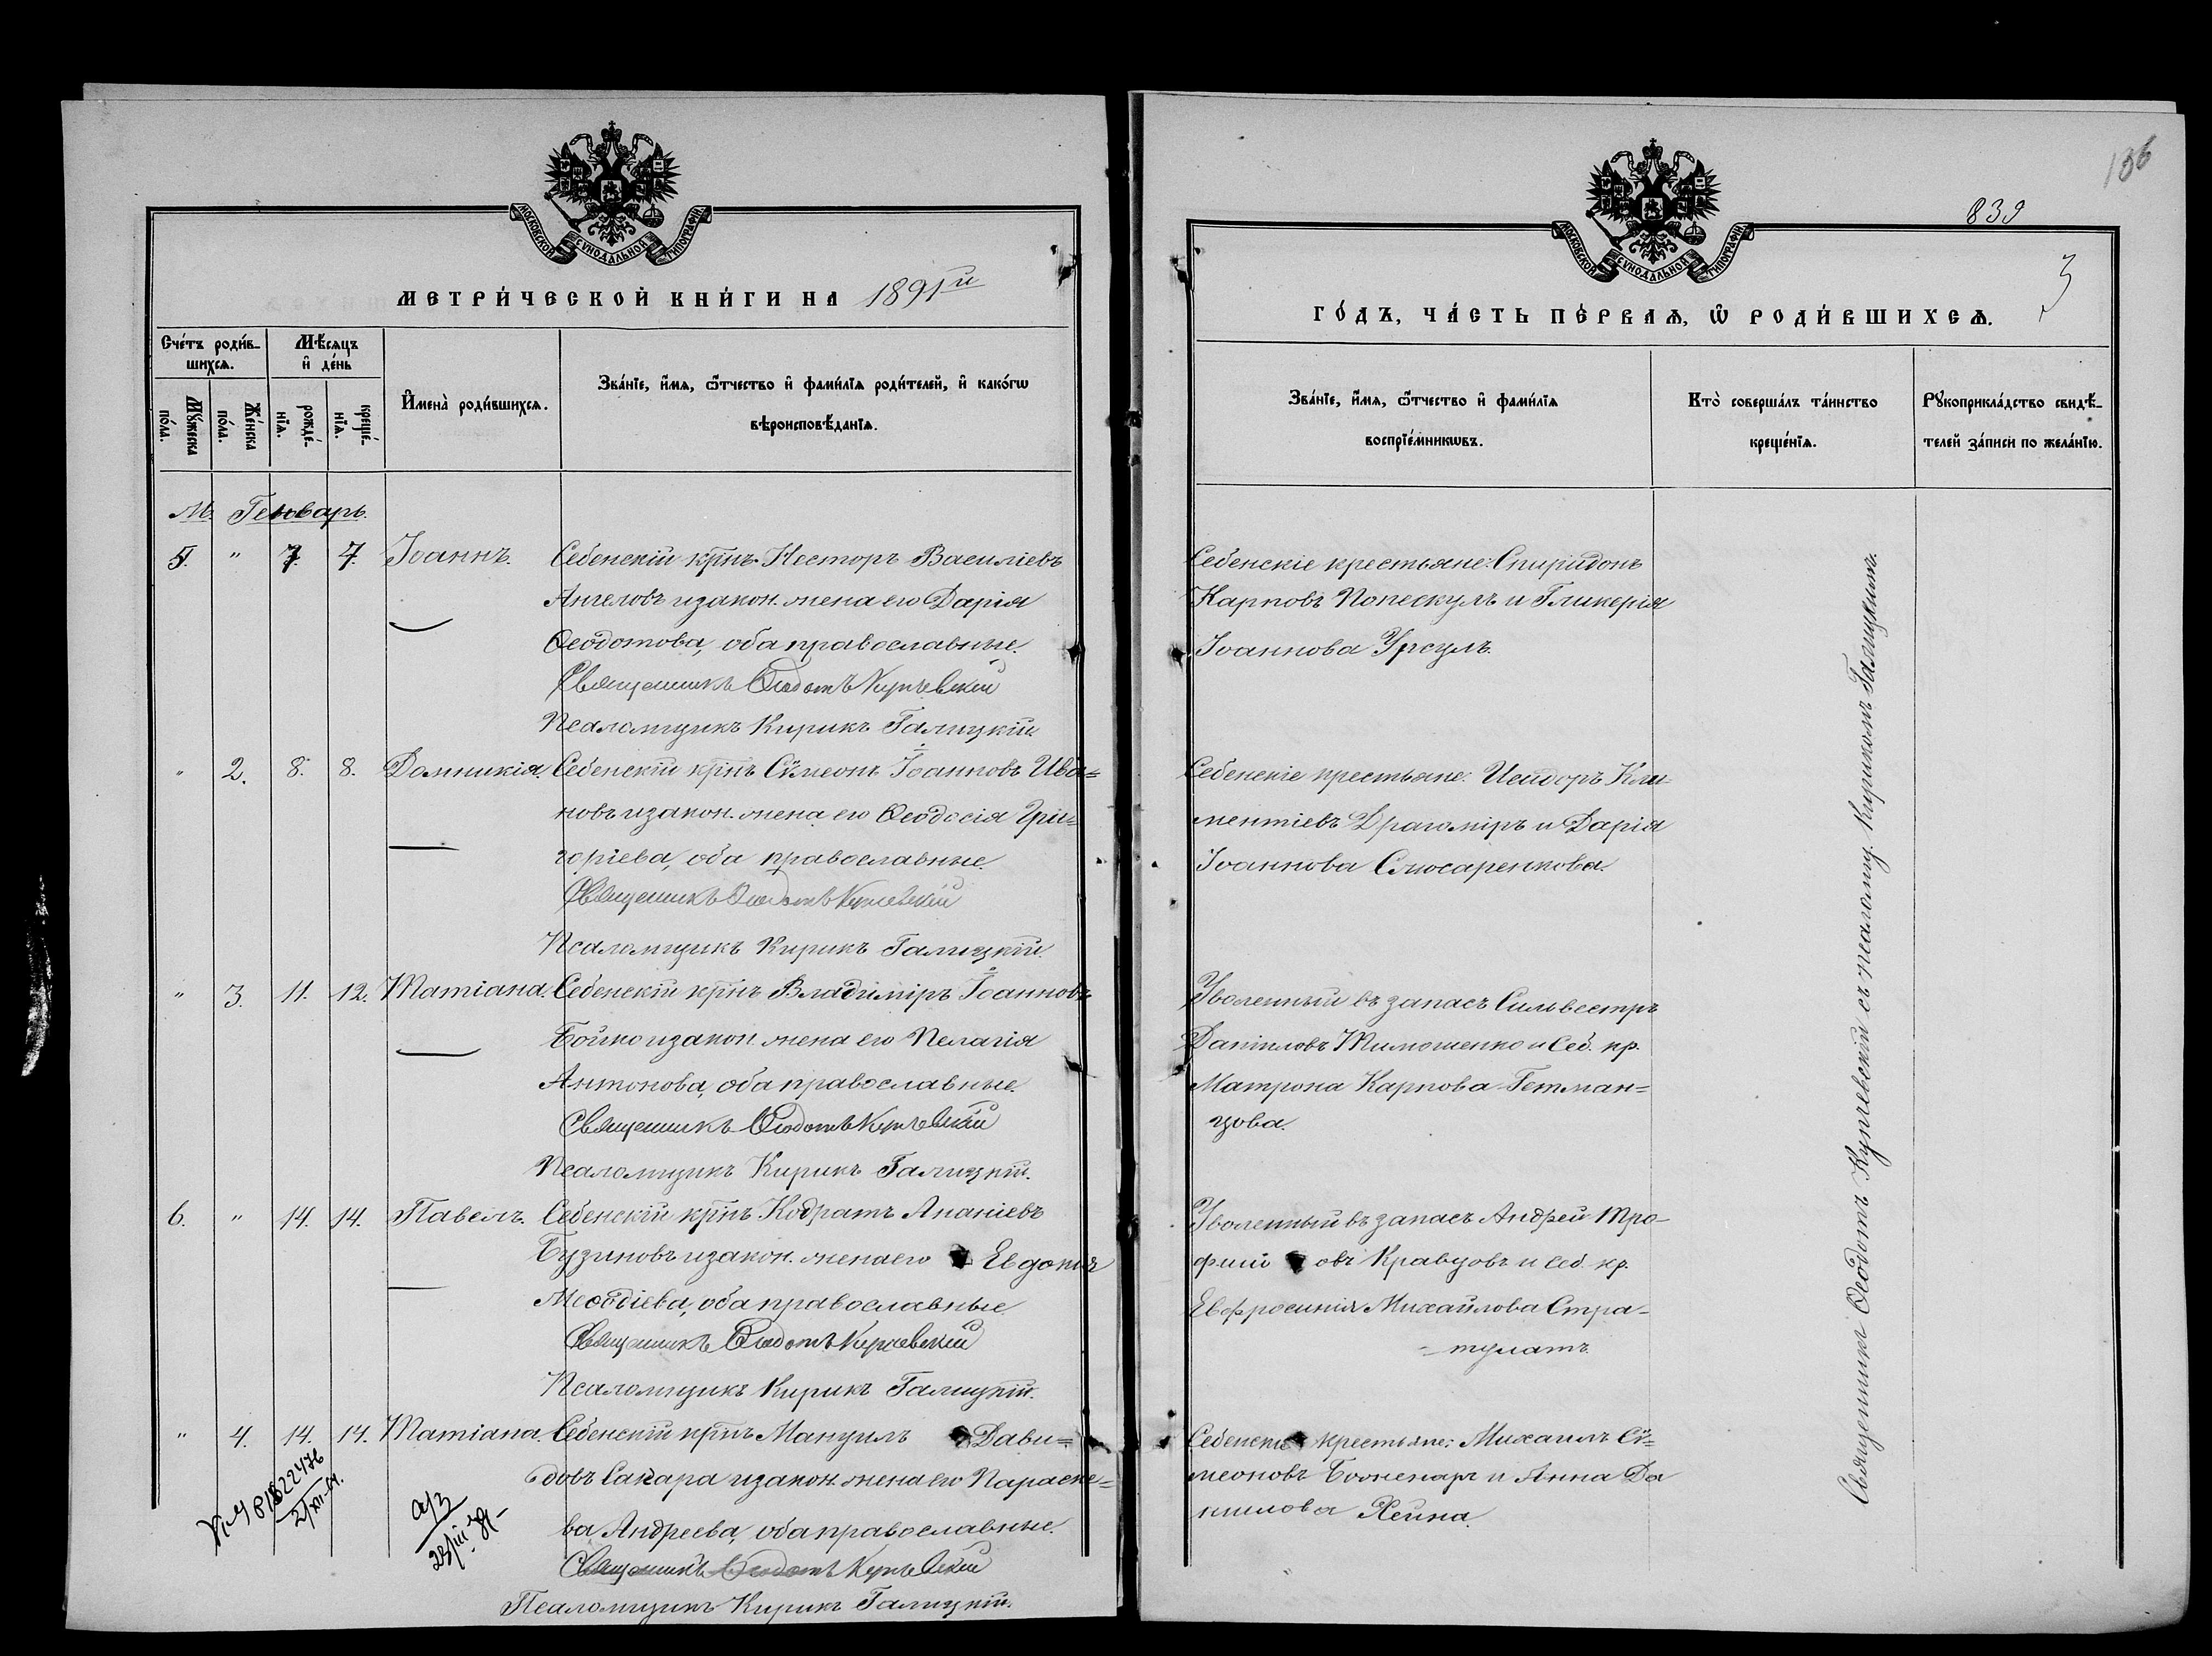 МОСКОВСКОЙ СѴНОДАЛЬНОЙ ТИПОГРАФІИ
МЕТРИ́ЧЕСКОЙ КНИ́ГИ НА 1891й
Сче́тъ роди́в-
шихсѧ.
Мѣ́сяцъ
и҆ де́нь
Мꙋ́жеска
по́ла.
Же́нска
по́ла.
рожде́-
нїѧ.
креще́-
нїѧ.
И҆мена̀ роди́вшихсѧ.
Зва́нїе, и҆́мѧ, ѻ҆́тчество и҆ фами́лїѧ роди́телей, и҆ како́гѡ
вѣроисповѣ́данїѧ.
М. Генварь.
5. " 7. 7. Іоаннъ. Себенскій крнъ Несторъ Василіевъ
Ангеловъ и закон. жена его Дарія
Ѳеодотова, оба православные.
Священникъ Ѳеодотъ Купчевскій
Псаломщикъ Кирикъ Галицкій.
" 2. 8. 8. Домникія. Себенскій крнъ Сѵмеонъ Іоанновъ Ива=
новъ и закон. жена его Ѳеодосія Гри=
горіева, оба православные.
Священникъ Ѳеодотъ Купчевскій
Псаломщикъ Кирикъ Галицкій.
" 3. 11. 12. Татіана. Себенскій крнъ Владиміръ Іоанновъ
Бойко и закон. жена его Пелагія
Антонова, оба православные.
Священникъ Ѳеодотъ Купчевскій
Псаломщикъ Кирикъ Галицкій.
6. " 14. 14. Павелъ. Себенскій крнъ Кодратъ Ананіевъ
Бузиновъ и закон. жена его Евдокія
Меѳодіева, оба православные.
Священникъ Ѳеодотъ Купчевскій
Псаломщикъ Кирикъ Галицкій.
" 4. 14. 14. Татіана. Себенскій крнъ Мануилъ Дави=
довъ Сакара и закон. жена его Параске=
ва Андреева, оба православные.
Священникъ Ѳеодотъ Купчевскій
Псаломщикъ Кирикъ Галицкій.
136
839
3
МОСКОВСКОЙ СѴНОДАЛЬНОЙ ТИПОГРАФІИ
ГО́ДЪ, ЧА́СТЬ ПЕ́РВАѦ, Ѡ҆ РОДИ́ВШИХСѦ.
Зва́нїе, и҆́мѧ, ѻ҆́тчество и҆ фами́лїѧ
воспрїе́мникѡвъ.
Кто̀ соверша́лъ та́инство
креще́нїѧ.
Рꙋкоприкла́дство свидѣ́-
телей за́писи по жела́нїю.
Себенскіе крестьяне: Спиридонъ
Карповъ Попескулъ и Гликерія
Іоаннова Урсулъ.
Себенскіе крестьяне: Исидоръ Кли-
ментіевъ Драгоміръ и Дарія
Іоаннова Слюсаренкова.
Уволенный въ запасъ Сильвестръ
Даніиловъ Тимошенко и Себ. кр.
Матрона Карпова Гетман=
цова.
Уволенный въ запасъ Андрей Тро-
фим овъ Кравцовъ и Себ. кр.
Евфросинія Михайлова Стра-
= тулатъ.
Себенскіе крестьяне: Михаилъ Сѵ=
меоновъ Боженаръ и Анна Да
нилова
Священникъ Ѳеодотъ Купчевскій съ псаломщ. Кирикомъ Галицкимъ.